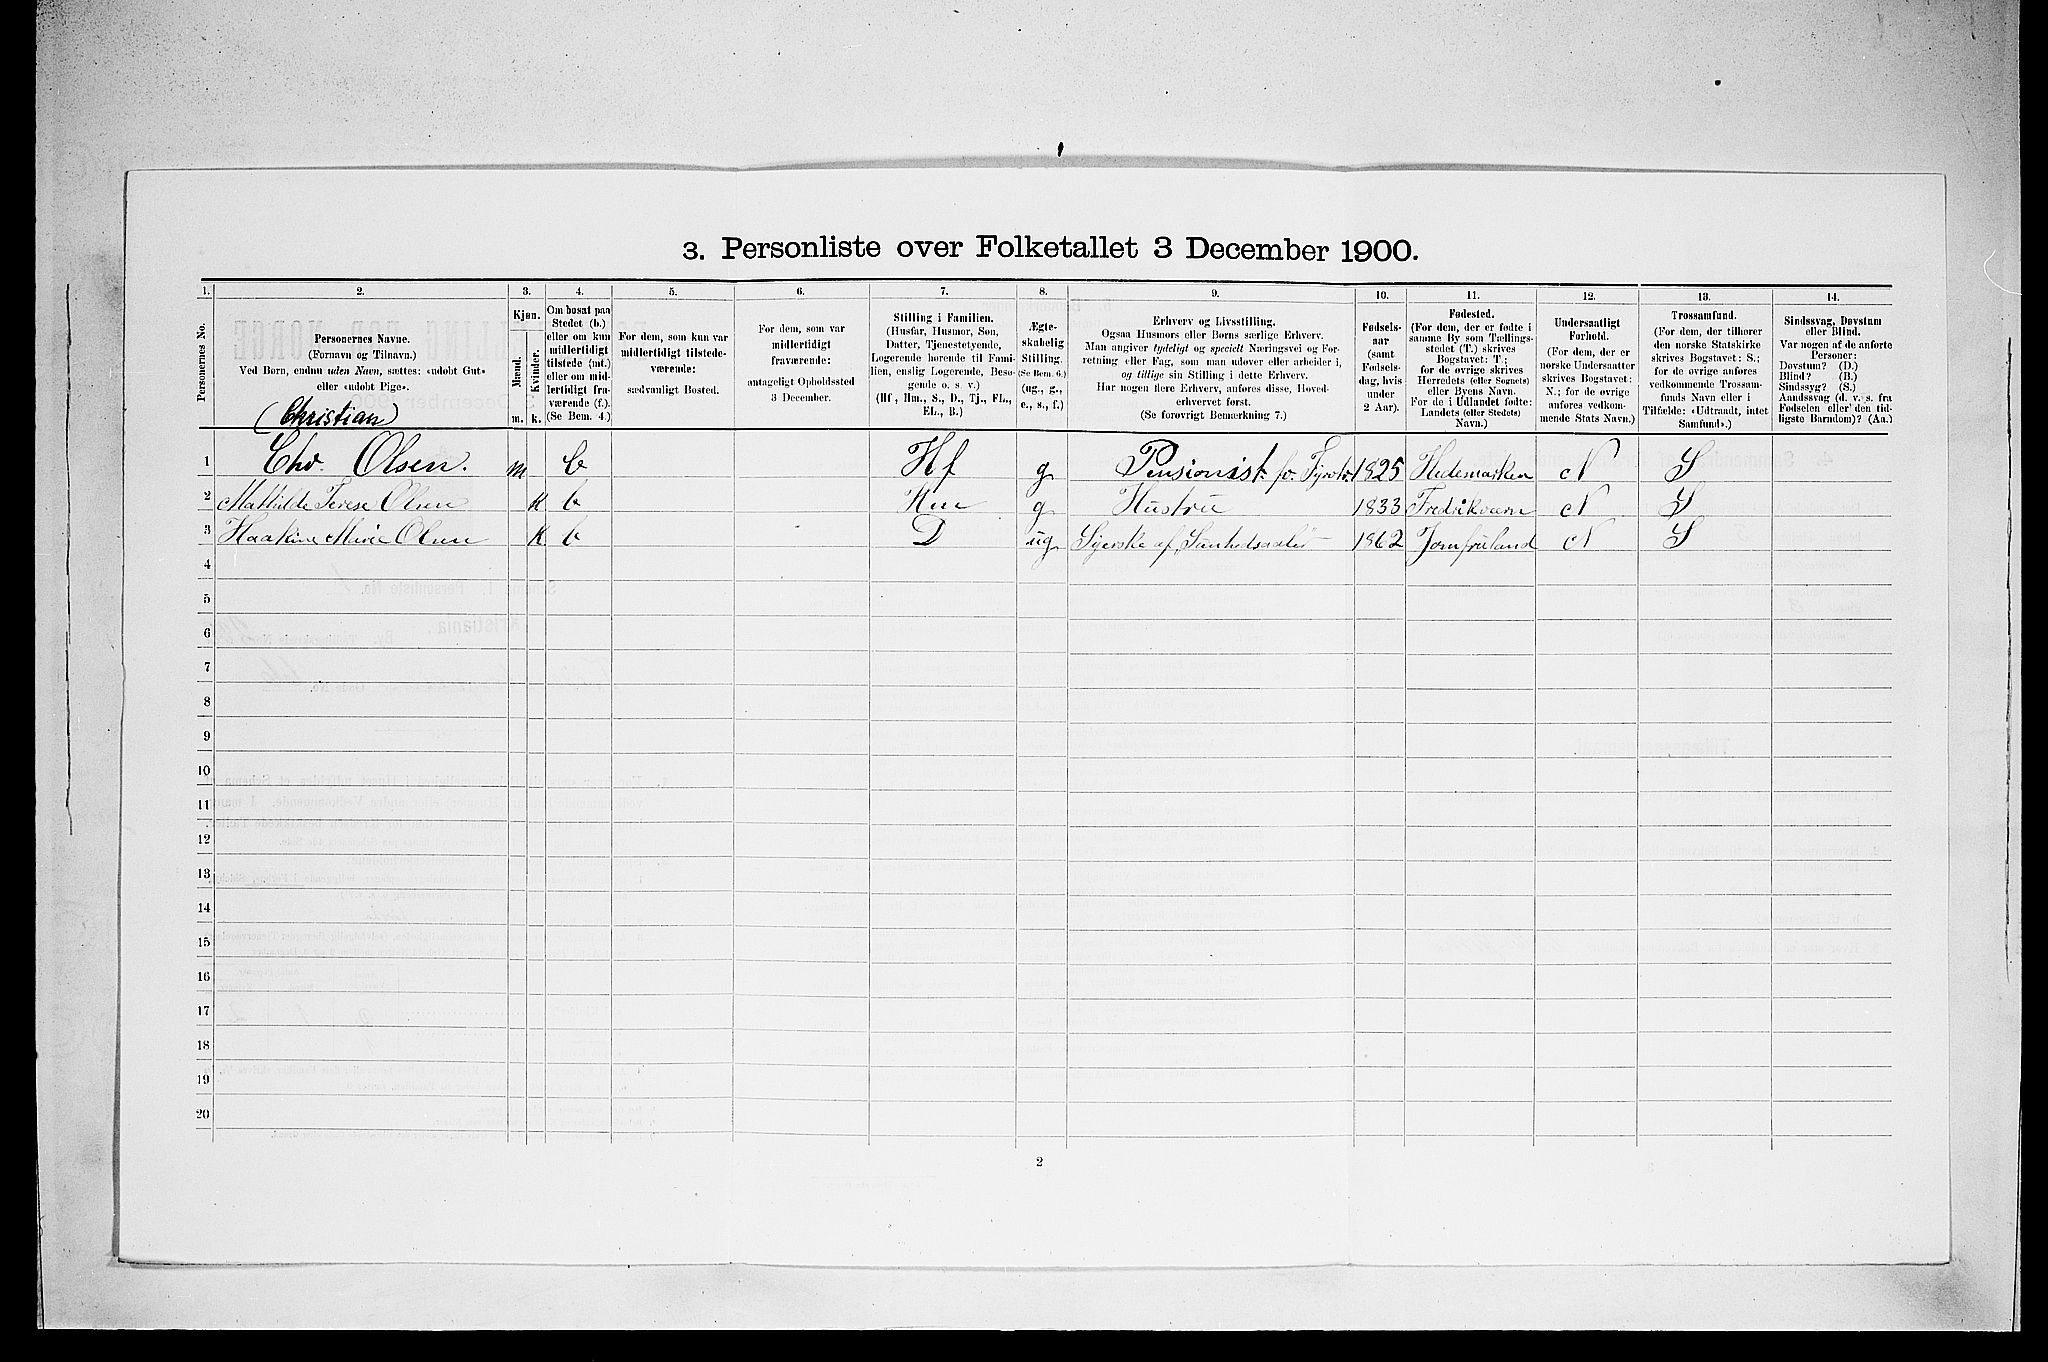 3. Personliste over Folketallet 3 December 1900.
1. 2. 3. 4. 5. 6. 7. 8. 9. 10. 11. 12. 13. 14.
Personernes No.
Personernes Navne.
(Fornavn og Tilnavn.)
Ved Børn, endnu uden Navn, sættes: «udøbt Gut»
eller «udøbt Pige».
Kjøn.
Mænd.
Kvinder.
m. k.
Om bosat paa
Stedet (b.)
eller om kun
midlertidigt
tilstede (mt.)
eller om mid-
lertidigt fra-
værende (f.).
(Se Bem. 4.)
For dem, som kun var
midlertidigt tilstede-
værende:
sædvanligt Bosted.
For dem, som var
midlertidigt
fraværende:
antageligt Opholdssted
3 December.
Stilling i Familien.
(Husfar, Husmor, Søn,
Datter, Tjenestetyende,
Logerende hørende til Fami-
lien, enslig Logerende, Besø-
gende o. s. v.)
(Hf., Hm., S., D., Tj., FL.,
EL., B.)
Ægte-
skabelig
Stilling.
(Se Bem. 6.)
(ug., g.,
e., s., f.)
Erhverv og Livsstilling.
Ogsaa Husmors eller Børns særlige Erhverv.
Man angiver tydeligt og specielt Næringsvei og For-
retning eller Fag, som man udøver eller arbeider i,
og tillige sin Stilling i dette Erhverv.
Har nogen flere Erhverv, anføres disse, Hoved-
erhvervet først.
(Se forøvrigt Bemærkning 7.)
Fødsels-
aar
(samt
Fødsels-
dag, hvis
under
2 Aar).
Fødested.
(For dem, der er fødte i
samme By som Tællings-
stedet (T.) skrives
Bogstavet: T.;
for de øvrige skrives
Herredets (eller Sognets)
eller Byens Navn.
For de i Udlandet fødte:
Landets (eller Stedets)
Navn.)
Undersaatligt
Forhold.
(For dem, der er
norske Undersaatter
skrives Bogstavet:
N.; for de øvrige
anføres vedkom-
mende Stats Navn.)
Trossamfund.
(For dem, der tilhører
den norske Statskirke
skrives Bogstavet: S.;
for de øvrige anføres
vedkommende Trossam-
funds Navn eller i
Tilfælde: «Udtraadt, intet
Samfund».)
Sindssvag, Døvstum
eller Blind.
Var nogen af de anførte
Personer:
Døvstum? (D.)
Blind? (B.)
Sindssyg? (S.)
Aandssvag (d. v. s. fra
Fødselen eller den tid-
ligste Barndom)? (Aa.)
(Christian)
1 Chr. Olsen. m b Hf g Pensionist fv. 1825 Hedemarken N S
2 Mathilde Terese Olsen k b Hm g Hustru 1833 Fredriksværn N S
3 Haakine Marie Olsen k b D ug Syerske af 1862 Jomfruland N S
4
5
6
7
8
9
10
11
12
13
14
15
16
17
18
19
20
2